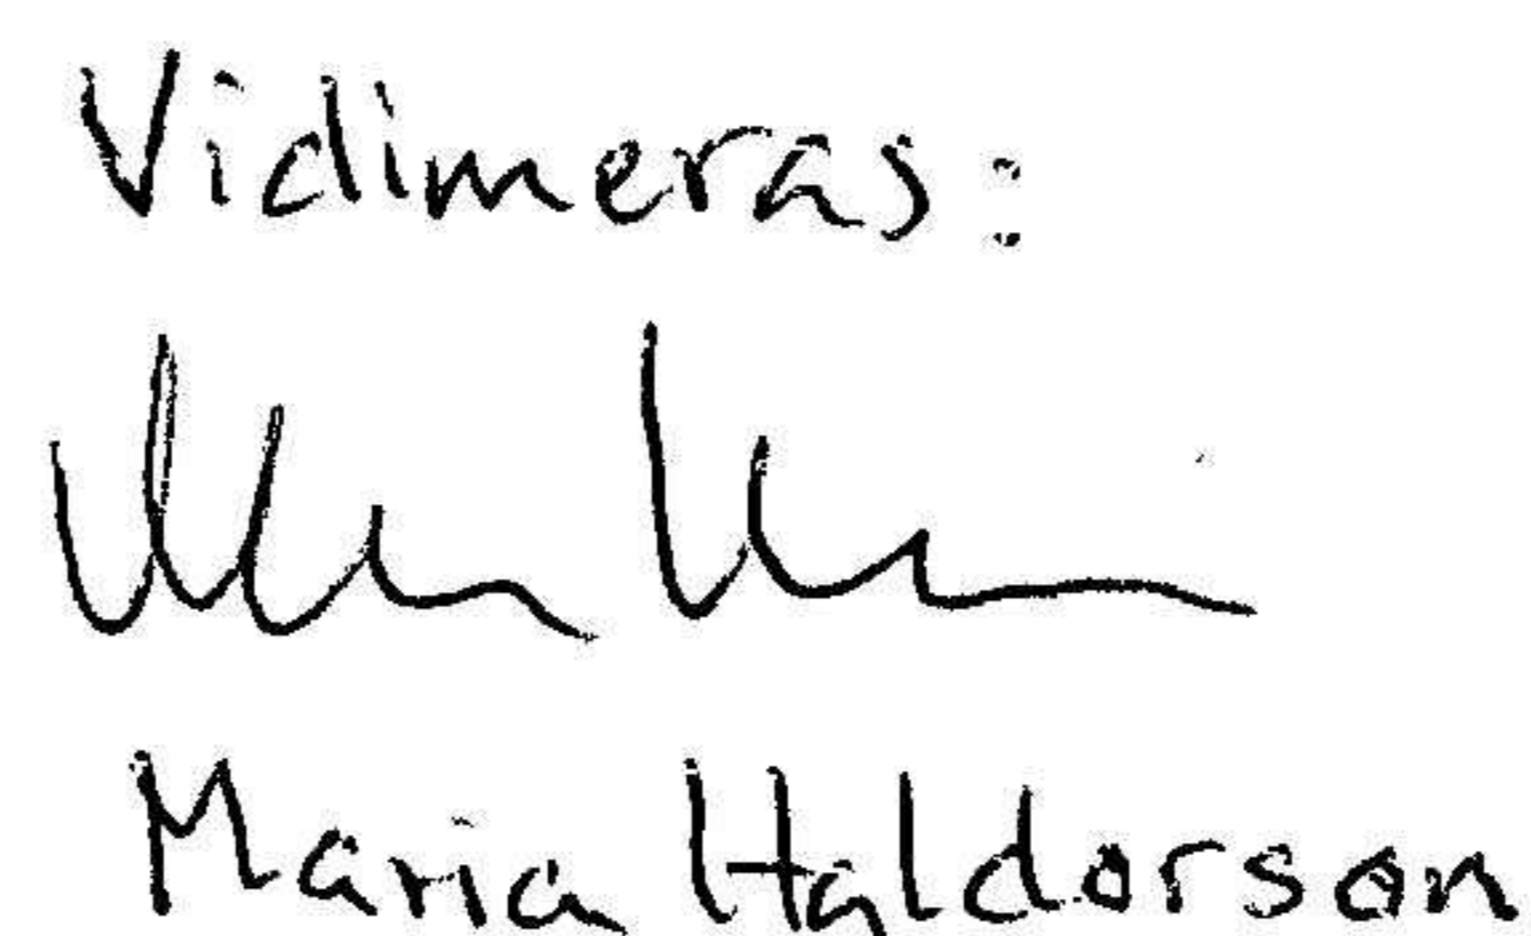 Vidimeras:
Maria Haldorson